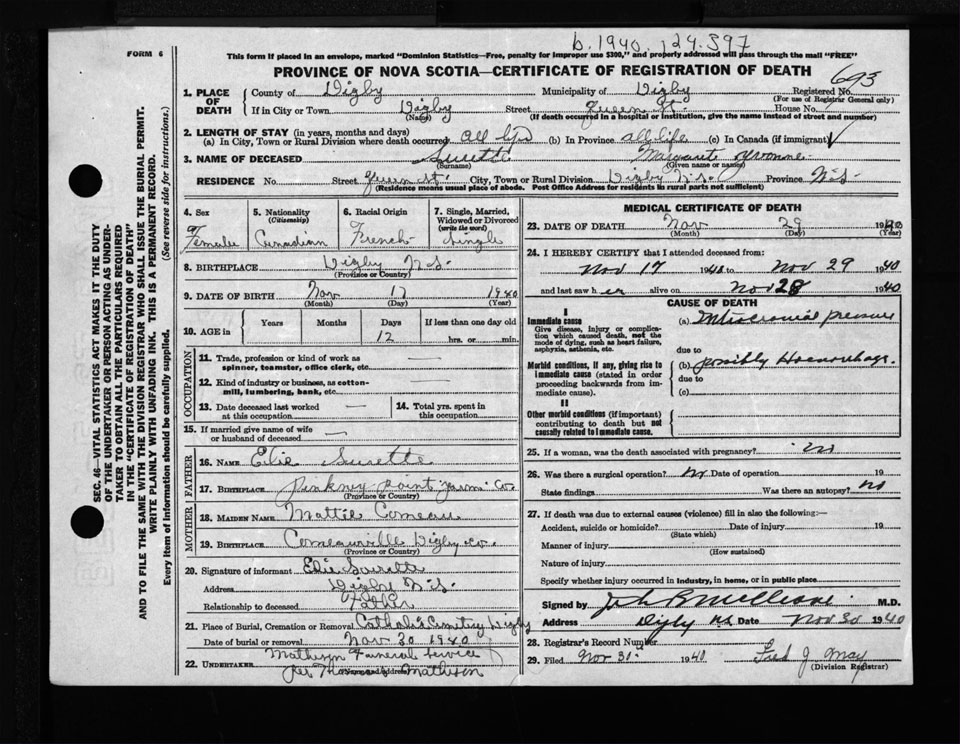 b. 1940. 124.397
FORM 6
This form if placed in an envelope, marked "Dominion Statistics—Free, penalty for improper use $300," and properly addressed will pass through the mail "FREE"
PROVINCE OF NOVA SCOTIA—CERTIFICATE OF REGISTRATION OF DEATH
693
1. PLACE OF DEATH County of Digby Municipality of Digby Registered No.
(For use of Registrar General only)
If in City or Town Digby Street Queen St. House No.
(Name) (If death occurred in a hospital or institution, give the name instead of street and number)
2. LENGTH OF STAY (in years, months and days)
(a) In City, Town or Rural Division where death occurred all life (b) In Province all life (c) In Canada (if immigrant)
3. NAME OF DECEASED Surette Margaret Yvonne
(Surname) (Given name or names)
RESIDENCE No. Street Queen St. City, Town or Rural Division Digby N.S. Province N.S.
(Residence means usual place of abode. Post Office Address for residents in rural parts not sufficient)
SEC. 46—VITAL STATISTICS ACT MAKES IT THE DUTY
OF THE UNDERTAKER OR PERSON ACTING AS UNDER-
TAKER TO OBTAIN ALL THE PARTICULARS REQUIRED
IN THE "CERTIFICATE OF REGISTRATION OF DEATH"
AND TO FILE THE SAME WITH THE DIVISION REGISTRAR WHO SHALL ISSUE THE BURIAL PERMIT.
WRITE PLAINLY WITH UNFADING INK. THIS IS A PERMANENT RECORD.
Every item of information should be carefully supplied. (See reverse side for instructions.)
4. Sex Female
5. Nationality (Citizenship) Canadian
6. Racial Origin French
7. Single, Married, Widowed or Divorced (write the word) Single
8. BIRTHPLACE Digby N.S.
(Province or Country)
9. DATE OF BIRTH Nov 17 1940
(Month) (Day) (Year)
10. AGE in Years Months Days If less than one day old
12 hrs. or min.
OCCUPATION
11. Trade, profession or kind of work as
spinner, teamster, office clerk, etc. —
12. Kind of industry or business, as cotton-
mill, lumbering, bank, etc. —
13. Date deceased last worked at this occupation —
14. Total yrs. spent in this occupation
15. If married give name of wife
or husband of deceased —
FATHER
16. NAME Elie Surette
17. BIRTHPLACE Pinkney Point Yarm. Co.
(Province or Country)
MOTHER
18. MAIDEN NAME Mattie Comeau
19. BIRTHPLACE Comeauville Digby Co.
(Province or Country)
20. Signature of informant Elie Surette
Address Digby N.S.
Relationship to deceased Father
21. Place of Burial, Cremation or Removal Catholic Cemetery Digby
Date of burial or removal Nov 30 1940
22. UNDERTAKER Matheson Funeral Service
per Matheson
MEDICAL CERTIFICATE OF DEATH
23. DATE OF DEATH Nov 29 1940
(Month) (Day)
24. I HEREBY CERTIFY that I attended deceased from:
Nov 17 1940 to Nov 29 1940
and last saw her alive on Nov 28 1940
CAUSE OF DEATH
I
Immediate cause (a) Intracranial pressure
Give disease, injury or complica-
tion which caused death, not the
mode of dying, such as heart failure,
asphyxia, asthenia, etc.
due to
Morbid conditions, if any, giving rise to
immediate cause (stated in order
proceeding backwards from im-
mediate cause).
(b) possibly Haemorrhage.
due to
(c)
II
Other morbid conditions (if important)
contributing to death but not
causally related to immediate cause.
25. If a woman, was the death associated with pregnancy? no
26. Was there a surgical operation? no Date of operation 19
State findings Was there an autopsy? no
27. If death was due to external causes (violence) fill in also the following:—
Accident, suicide or homicide? Date of injury 19
(State which)
Manner of injury
(How sustained)
Nature of injury
Specify whether injury occurred in industry, in home, or in public place
Signed by M.D.
Address Digby N.S. Date Nov 30 1940
28. Registrar's Record Number
29. Filed Nov 31 1940 Fred J. May
(Division Registrar)